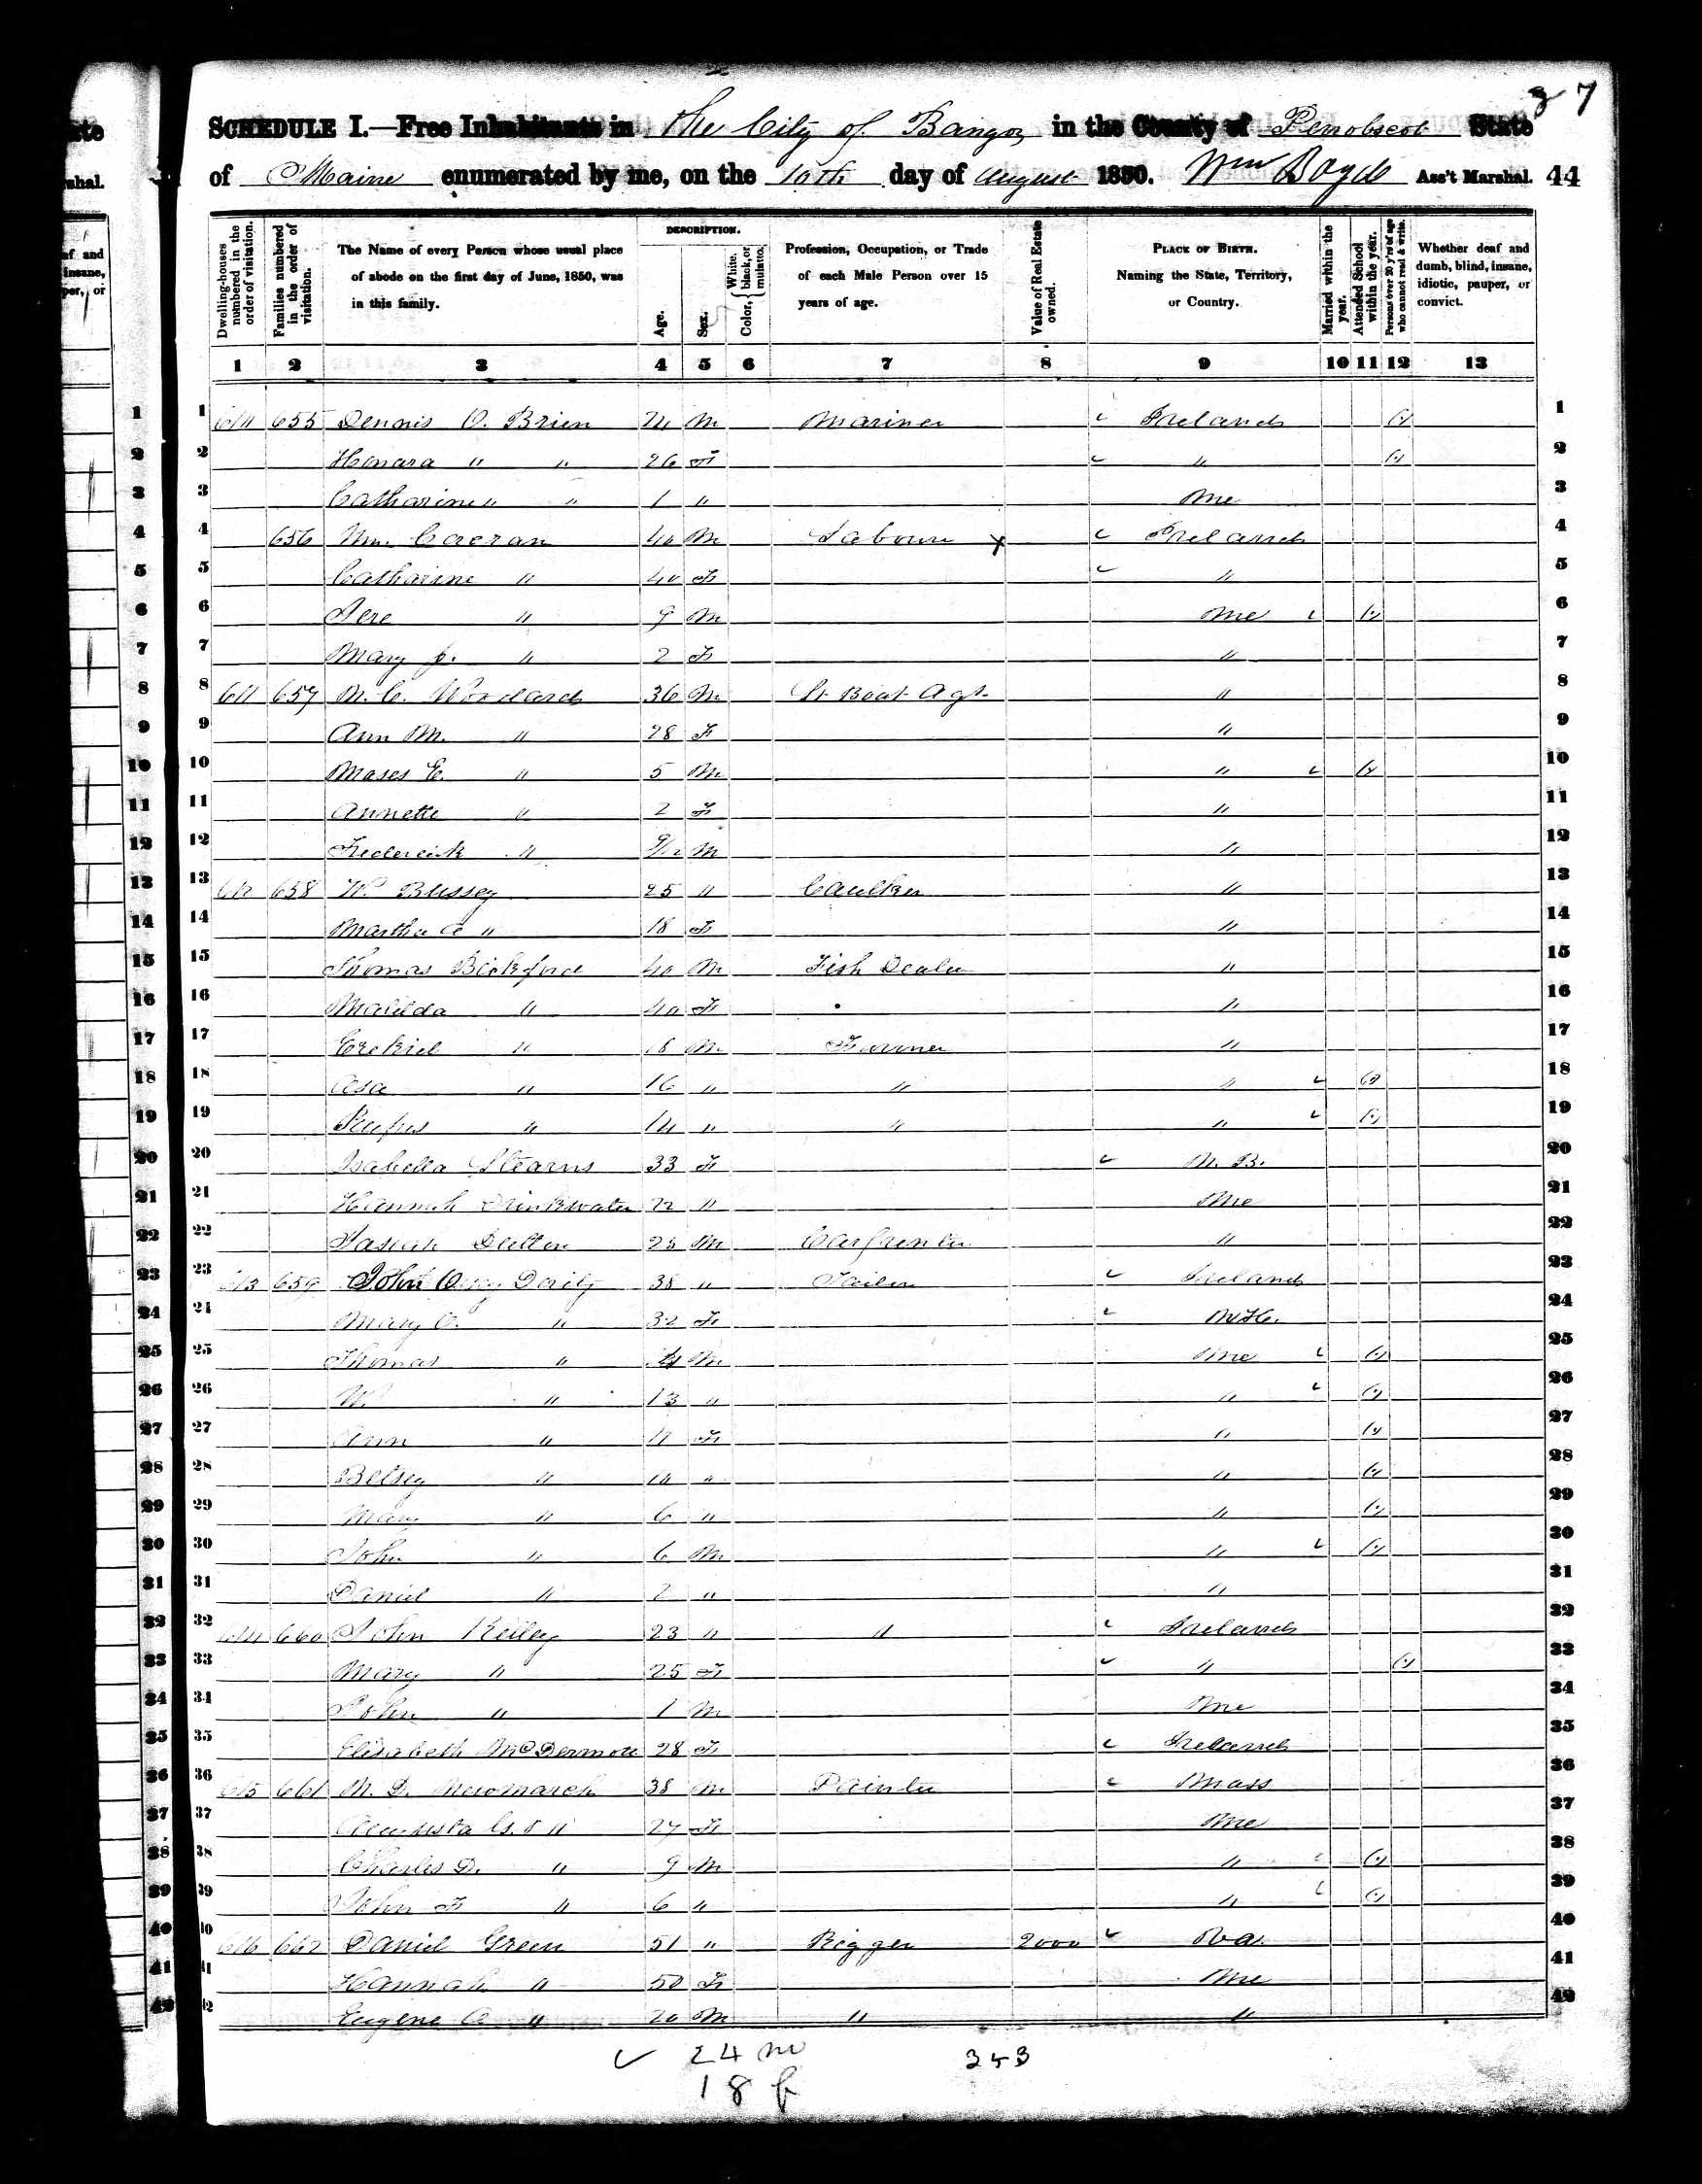 87
SCHEDULE I.—Free Inhabitants in The City of Bangor in the County of Penobscot State
of Maine enumerated by me, on the 10th day of August 1850. Wm Boyd Ass't Marshal. 44
Dwelling-houses numbered in the order of visitation.
Families numbered in the order of visitation.
The Name of every Person whose usual place of abode on the first day of June, 1850, was in this family.
DESCRIPTION.
Age.
Sex.
Color, { White, black, or mulatto.
Profession, Occupation, or Trade of each Male Person over 15 years of age.
Value of Real Estate owned.
PLACE OF BIRTH. Naming the State, Territory, or Country.
Married within the year.
Attended School within the year.
Persons over 20 y'rs of age who cannot read & write.
Whether deaf and dumb, blind, insane, idiotic, pauper, or convict.
1 2 3 4 5 6 7 8 9 10 11 12 13
1 655 Dennis O. Brien M Mariner Ireland 1
2 Honara " " 26 F " 2
3 Catharine " " 1 " Me 3
4 656 Wm. Corcran 40 M Laborer x Ireland 4
5 Catharine " 40 F " 5
6 Jere " 9 M Me 6
7 Mary J. " 2 F " 7
8 611 657 M. C. Woodard 36 M St Boat Agt " 8
9 Ann M. " 28 F " 9
10 Moses E. " 5 M " 10
11 Annette " 2 F " 11
12 Frederick " 9/12 M " 12
13 612 658 W. Bussey 25 " Caulker " 13
14 Martha A " 18 F " 14
15 Thomas Bickford 40 M Fish Dealer " 15
16 Matilda " 40 F " 16
17 Ezekiel " 18 M Farmer " 17
18 Asa " 16 " " " 18
19 Rufus " 14 " " " 19
20 Isabella Stearns 33 F N. B. 20
21 Hannah Drinkwater 22 " Me 21
22 25 M Carpenter " 22
23 613 659 John Daily 38 " Tailor Ireland 23
24 Mary C. " 32 F N.H. 24
25 Thomas " M Me 25
26 W. " 13 " " 26
27 Ann " F " 27
28 Betsey " 10 " " 28
29 Mary " 6 " " 29
30 John " 6 M " 30
31 Daniel " 2 " " 31
32 614 660 John Kelley 23 " " Ireland 32
33 Mary " 25 F " 33
34 John " 1 M Me 34
35 Elisabeth McDermott 28 F Ireland 35
36 615 661 M. D. Newmarch 38 M Painter Mass 36
37 Augusta " 27 F Me 37
38 Charles D. " 9 M " 38
39 John F " 6 " " 39
40 616 662 Daniel Green 51 " Rigger 2000 Va. 40
41 Hannah " 50 F Me 41
42 Eugene A " 20 M " " 42
24 m 353
18 f